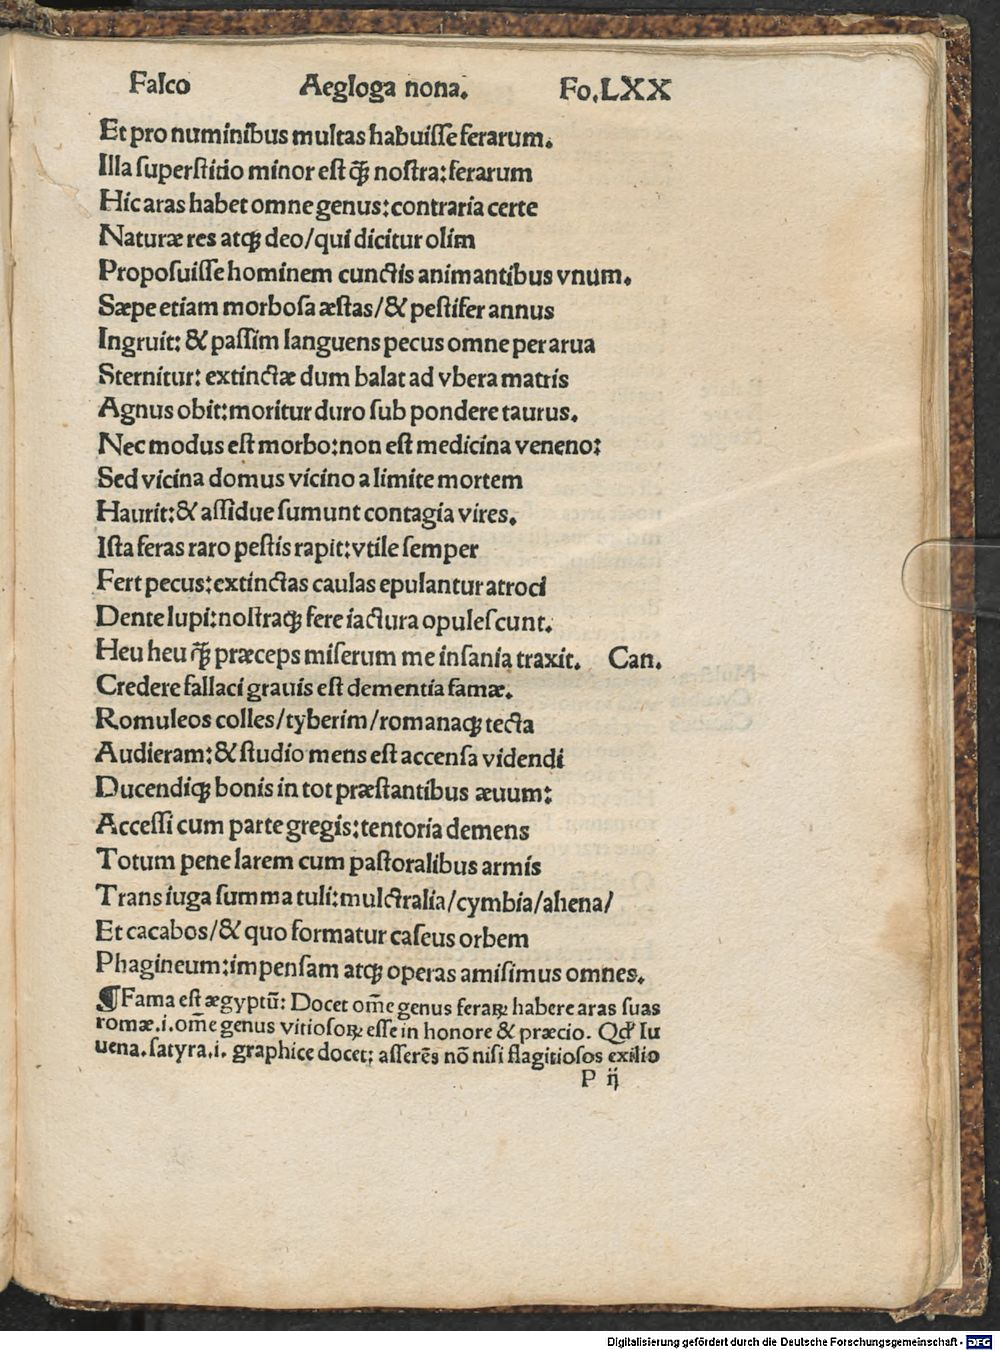 Falco Aegloga nona. Fo.LXX
Et pro numinibus multas habuiſſe ferarum.
Illa ſuperſtitio minor eſt ꝙ̃ noſtra: ferarum
Hic aras habet omne genus: contraria certe
Naturæ res atqꝫ deo/qui dicitur olim
Propoſuiſſe hominem cunctis animantibus vnum.
Sæpe etiam morboſa æſtas/& peſtifer annus
Ingruit: & paſſim languens pecus omne per arua
Sternitur: extinctæ dum balat ad vbera matris
Agnus obit: moritur duro ſub pondere taurus.
Nec modus eſt morbo: non eſt medicina veneno:
Sed vicina domus vicino a limite mortem
Haurit: & aſſidue ſumunt contagia vires.
Iſta feras raro peſtis rapit: vtile ſemper
Fert pecus: extinctas caulas epulantur atroci
Dente lupi: noſtraqꝫ fere iactura opuleſcunt.
Heu heu ꝙ̃ præceps miſerum me inſania traxit. Can.
Credere fallaci grauis eſt dementia famæ.
Romuleos colles/tyberim/romanaqꝫ tecta
Audieram: & ſtudio mens eſt accenſa videndi
Ducendiqꝫ bonis in tot præſtantibus æuum:
Acceſſi cum parte gregis: tentoria demens
Totum pene larem cum paſtoralibus armis
Trans iuga ſumma tuli: mulctralia/cymbia/ahena/
Et cacabos/& quo formatur caſeus orbem
Phagineum: impenſam atqꝫ operas amiſimus omnes.
¶Fama eſt ægyptũ: Docet om̃e genus feraꝝ habere aras ſuas
romæ.i.om̃e genus vitioſoꝝ eſſe in honore & præcio. Qď Iu
uena.ſatyra.i. graphice docet: aſſerẽs nõ niſi flagitioſos exilio
P ij
Digitalisierung gefördert durch die Deutsche Forschungsgemeinschaft - DFG